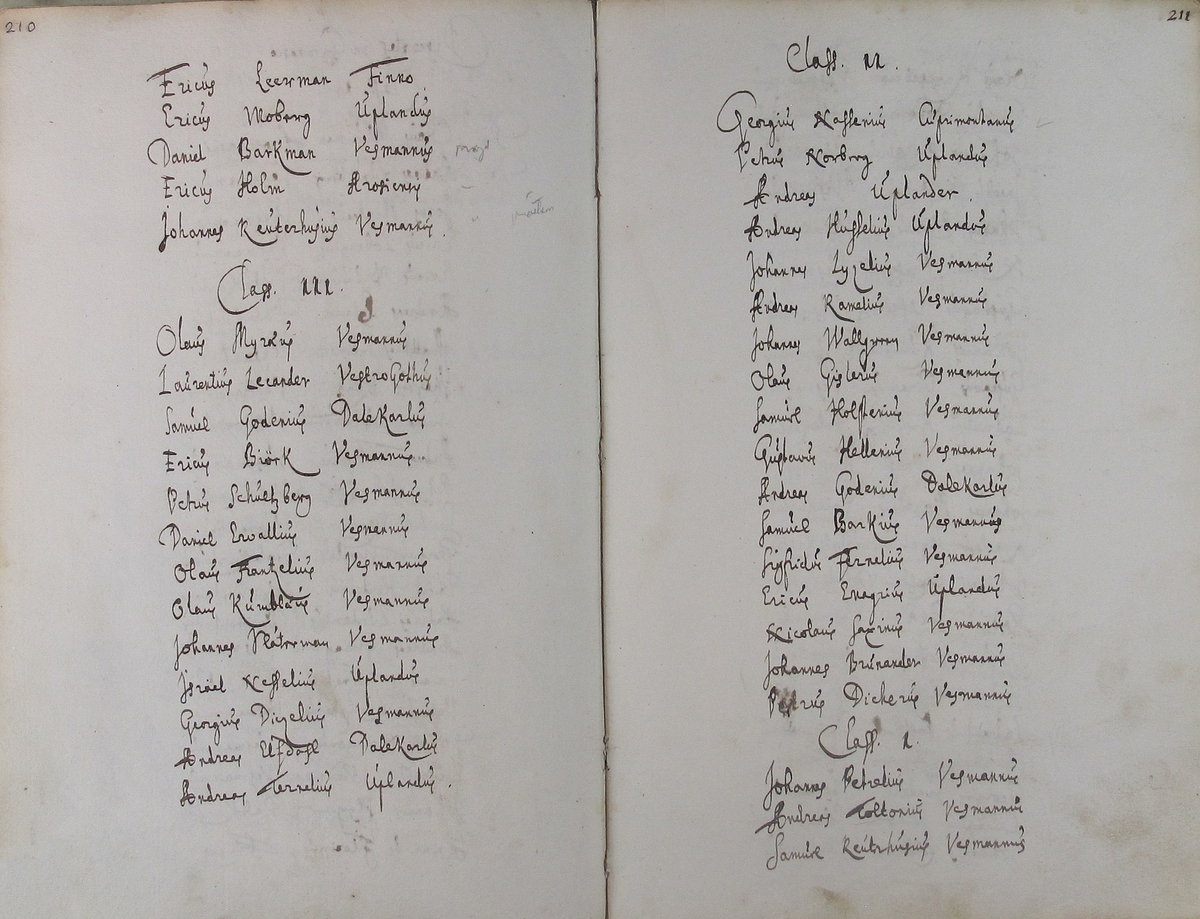 210
Ericus Leerman Finno.
Ericus Moberg Uplandus
Daniel Barkman Vesmannus
Ericus Holm Arosiensis
Johannes Reuterhusius Vesmannus.
Class. III.
Olaus Myrzus Vesmannus
Laurentius Lecander VestroGothus
Samuel Godenius DaleKarlus
Ericus Biörk Vesmannus.
Petrus Schultzberg Vesmannus
Daniel Ervallius Vesmannus
Olaus Frantzelius Vesmannus
Olaus Kumblæus Vesmannus
Johannes Säterman Vesmannus
Israel Nesselius Uplandus
Georgius Dizelius Vesmannus
Andreas Ufdahl DaleKarlus
Andreas Ternelius Uplandus.
211
Class. II.
Georgius Nassenius Cuprimontanus
Petrus Norberg Uplandus
Andreas Uplander.
Andreas Husselius Uplandus
Johannes Lyzelius Vesmannus
Andreas Ramelius Vesmannus
Johannes Wallgren Vesmannus
Olaus Gislerus Vesmannus
Samuel Holstenius Vesmannus
Gustavus Hellenius Vesmannus
Andreas Godenius DaleKarlus
Samuel Barkius Vesmannus
Sigfridus Fernelius Vesmannus
Ericus Enagrius Uplandus
Nicolaus Saxinus Vesmannus
Johannes Brunander Vesmannus
Petrus Dickerus Vesmannus
Class. I.
Johannes Petrelius Vesmannus
Andreas Toltonius Vesmannus
Samuel Reuterhusius Vesmannus